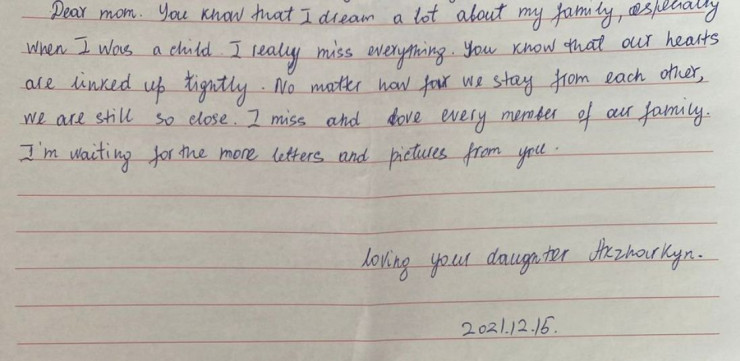 Dear mom. You know that I dream a lot about my family, especially
when I was a child. I really miss everything. You know that our hearts
are linked up tightly. No matter how far we stay from each other,
we are still so close. I miss and love every member of our family.
I'm waiting for the more letters and pictures from you.
loving your daughter Akzharkyn.
2021.12.15.